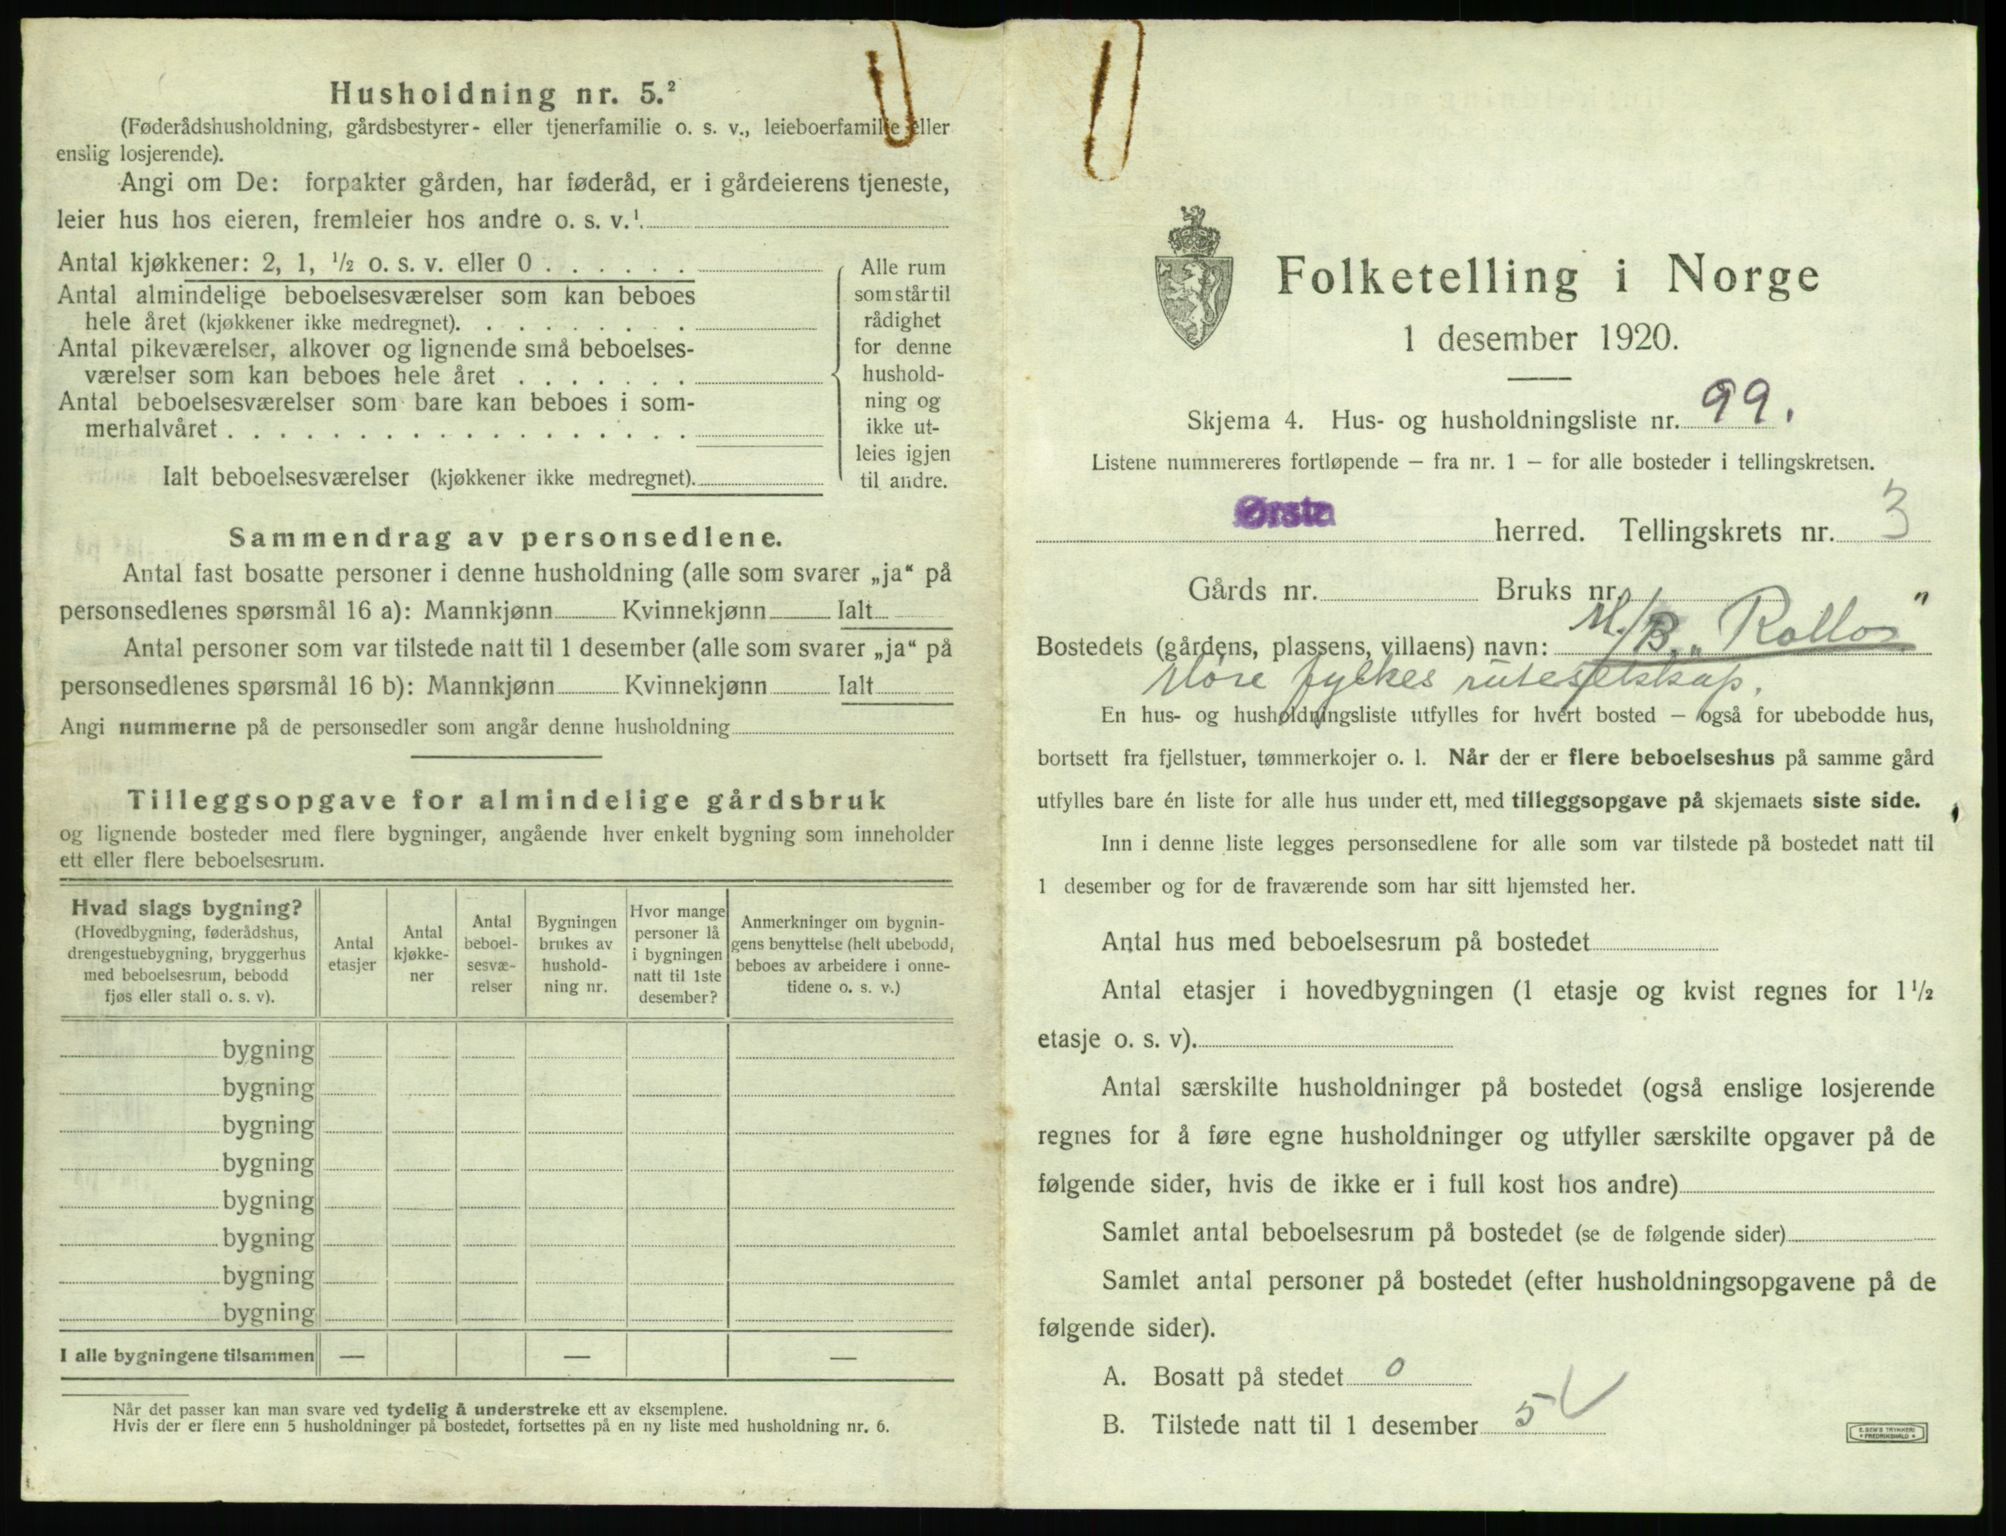 Husholdning nr. 5.²
(Føderådshusholdning, gårdsbestyrer- eller tjenerfamilie o. s. v., leieboerfamilie eller
enslig losjerende).
Angi om De: forpakter gården, har føderåd, er i gårdeierens tjeneste,
leier hus hos eieren, fremleier hos andre o. s. v.¹
Antal kjøkkener: 2, 1, ½ o. s. v. eller 0 . . . . . .
Antal almindelige beboelsesværelser som kan beboes
hele året (kjøkkener ikke medregnet). . . . . . . . .
Antal pikeværelser, alkover og lignende små beboelses-
værelser som kan beboes hele året . . . . . . .
Antal beboelsesværelser som bare kan beboes i som-
merhalvåret . . . . . . . . . . . . . . . . . .
Ialt beboelsesværelser (kjøkkener ikke medregnet).
Alle rum
som står til
rådighet
for denne
hushold-
ning og
ikke ut-
leies igjen
til andre.
Sammendrag av personsedlene.
Antal fast bosatte personer i denne husholdning (alle som svarer „ja“ på
personsedlenes spørsmål 16 a): Mannkjønn Kvinnekjønn Ialt
Antal personer som var tilstede natt til 1 desember (alle som svarer „ja“ på
personsedlenes spørsmål 16 b): Mannkjønn Kvinnekjønn Ialt
Angi nummerne på de personsedler som angår denne husholdning
Tilleggsopgave for almindelige gårdsbruk
og lignende bosteder med flere bygninger, angående hver enkelt bygning som inneholder
ett eller flere beboelsesrum.
Hvad slags bygning?
(Hovedbygning, føderådshus,
drengestuebygning, bryggerhus
med beboelsesrum, bebodd
fjøs eller stall o. s. v).
Antal
etasjer
Antal
kjøkke-
ner
Antal
beboel-
sesvæ-
relser
Bygningen
brukes av
hushold-
ning nr.
Hvor mange
personer lå
i bygningen
natt til 1ste
desember?
Anmerkninger om bygnin-
gens benyttelse (helt ubebodd,
beboes av arbeidere i onne-
tidene o. s. v.)
bygning
bygning
bygning
bygning
bygning
bygning
bygning
bygning
I alle bygningene tilsammen — — —
Når det passer kan man svare ved tydelig å understreke ett av eksemplene.
Hvis der er flere enn 5 husholdninger på bostedet, fortsettes på en ny liste med husholdning nr. 6.
Folketelling i Norge
1 desember 1920.
Skjema 4. Hus- og husholdningsliste nr. 99.
Listene nummereres fortløpende – fra nr. 1 – for alle bosteder i tellingskretsen.
Ørsta herred. Tellingskrets nr. 3
Gårds nr. Bruks nr.
Bostedets (gårdens, plassens, villaens) navn: M/B „Rollo"
Møre fylkes ruteselskap.
En hus- og husholdningsliste utfylles for hvert bosted – også for ubebodde hus,
bortsett fra fjellstuer, tømmerkojer o. l. Når der er flere beboelseshus på samme gård
utfylles bare én liste for alle hus under ett, med tilleggsopgave på skjemaets siste side.
Inn i denne liste legges personsedlene for alle som var tilstede på bostedet natt til
1 desember og for de fraværende som har sitt hjemsted her.
Antal hus med beboelsesrum på bostedet
Antal etasjer i hovedbygningen (1 etasje og kvist regnes for 1½
etasje o. s. v).
Antal særskilte husholdninger på bostedet (også enslige losjerende
regnes for å føre egne husholdninger og utfyller særskilte opgaver på de
følgende sider, hvis de ikke er i full kost hos andre)
Samlet antal beboelsesrum på bostedet (se de følgende sider)
Samlet antal personer på bostedet (efter husholdningsopgavene på de
følgende sider).
A. Bosatt på stedet 0
B. Tilstede natt til 1 desember 5
E. SEM'S TRYKKERI
FREDRIKSHALD